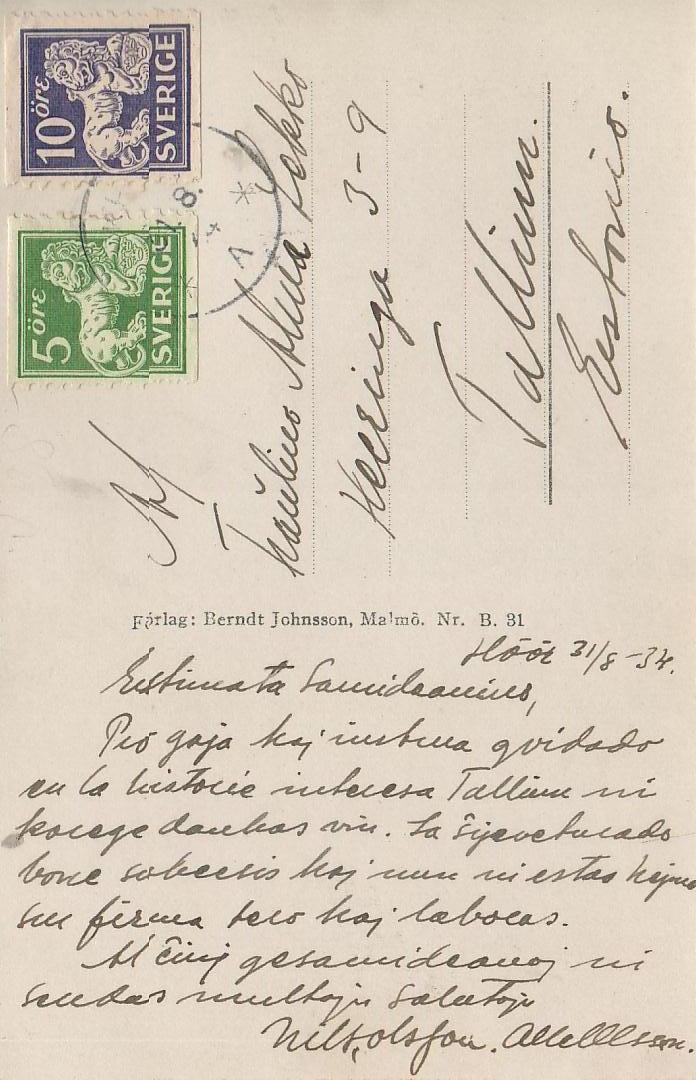 10 öre
SVERIGE
5 öre
SVERIGE
8.
A
Al
Fraŭlino Alma Lekko
Heeringa 3-9
Tallinn.
Estonio.
Förlag: Berndt Johnsson, Malmö. Nr. B. 31
Höör 31/8-34.
Estimata Samideanino,
Pro gaja kaj instrua gvidado
en la historie interesa Tallinn ni
korege dankas vin. La ŝipveturado
bone sukcesis kaj nun ni estas hejme
sur firma tero kaj laboras.
Al ĉiuj gesamideanoj ni
sendas multajn salutojn
Nils Olsson. Olsson.